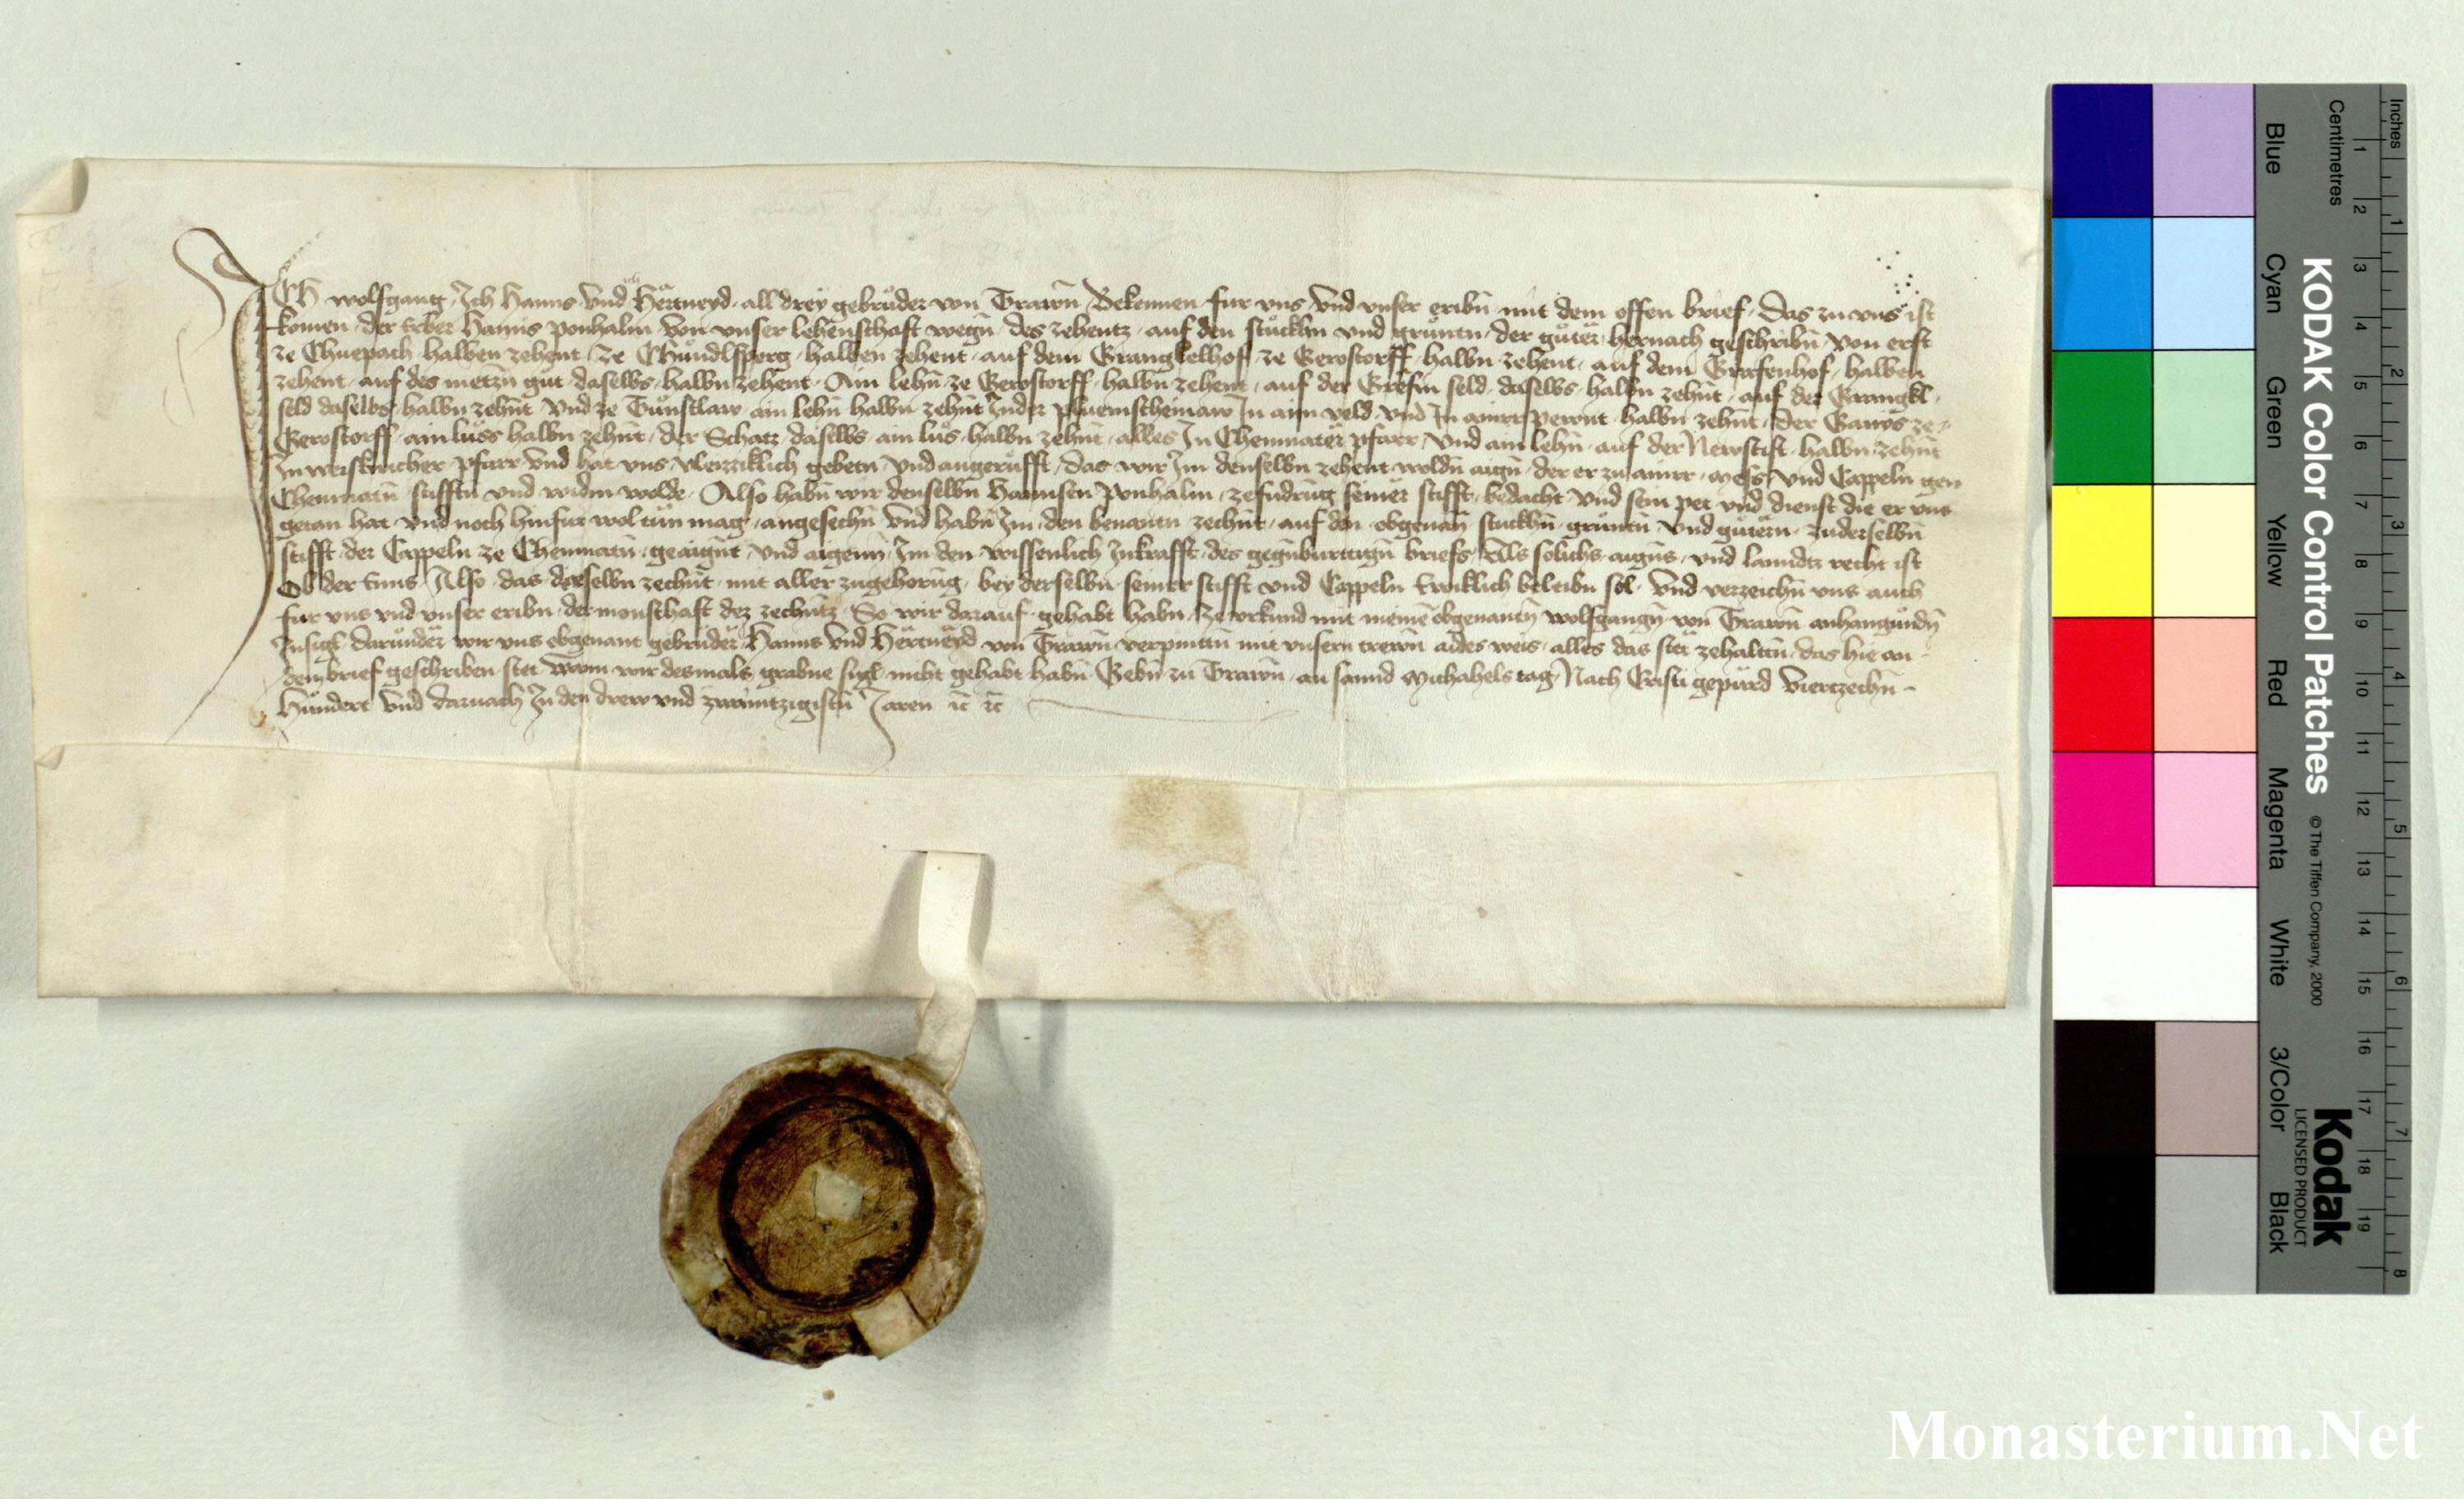 ICH wolfgang Ich Hanns vnd ich Hertneyd all drey gebrüder von Trawn Bekennen fur vns vnd vnser eribn mit dem offen brief Das zu vns ist
komen der erber Hanns ponhalm von vnser lehenschaft wegn des zehentz auf den stükhn vnd grüntn der güter hernach geschribn von erst
ze Chuepach halben zehent ze Chündlsperg halben zehent auf dem Grangkelhoff ze Gerostorff halbn zehent auf dem Grefenhof halben
zehent auf des metzn güt daselbs halbn zehent Ain lehn ze Gerostorff halbn zehent auf der Grefin seld daselbs halbn zehnt auf der Grangkl
seld daselbs halbn zehnt vnd ze Tünstlaw ain lehn halbn zehnt In der In aim veld vnd In ainer pewnt halbn zehnt der Ganns ze
Gerostorff ain luss halbn zehnt der Schatz daselbs ain lus halbn zehnt alles In Chemnater pfarr vnd ain lehn auf der Newstift halbn zehnt
In weiskiricher pfarr vnd hat vns vleizziklich gebetn vnd angerüfft das wir Im denselbn zehent woldn aign der er zu ainer mess vnd Cappeln gen
Chemnatn stifftn vnd widm wolde Also habn wir denselbn Hannsen ponhalm zefudrung seiner stifft bedacht vnd sein pet vnd dienst die er vns
getan hat vnd noch hinfur wol tün mag angesechn vnd habn Im den benantn zechnt auf den obgenantn stukhn grüntn vnd gütern zu derselbn
stifft der Cappeln ze Chemnatn geaignt vnd aigenn Im den wissenlich In krafft des gegnburttign briefs Als solichs aigns vnd lanndtz recht ist
Ob der Enns Also das derselbn zechnt mit aller zugehorung bey derselbn seiner stifft vnd Cappeln Ewiklich beleibn sol vnd verzeichn vns auch
fur vns vnd vnser eribn der monschaft dez zechntz So wir darauf gehabt habn ze vrkund mit meinem obgenantn wolfgangn von Trawn anhangündn
Insigl darunder wir vns obgenant gebrüder Hanns vnd Hertneyd von Trawn verpintn mit vnsern trewn aides weis alles das stet zehaltn das hie an
dem brief geschriben stet wann wir desmals grabne sigl nicht gehabt habn Gebn zu Trawn an sannd Michahels tag Nach Cristi gepürd vierzechn
Hündert vnd darnach In den drew vnd zwaintzigistn Jaren
KODAK Color Control Patches
© The Tiffen Company, 2000
Kodak
LICENSED PRODUCT
Inches
Centimetres
Blue
Cyan
Green
Yellow
Red
Magenta
White
3/Color
Black
1 2 3 4 5 6 7 8 9 10 11 12 13 14 15 16 17 18 19
1 2 3 4 5 6 7 8
Monasterium.Net